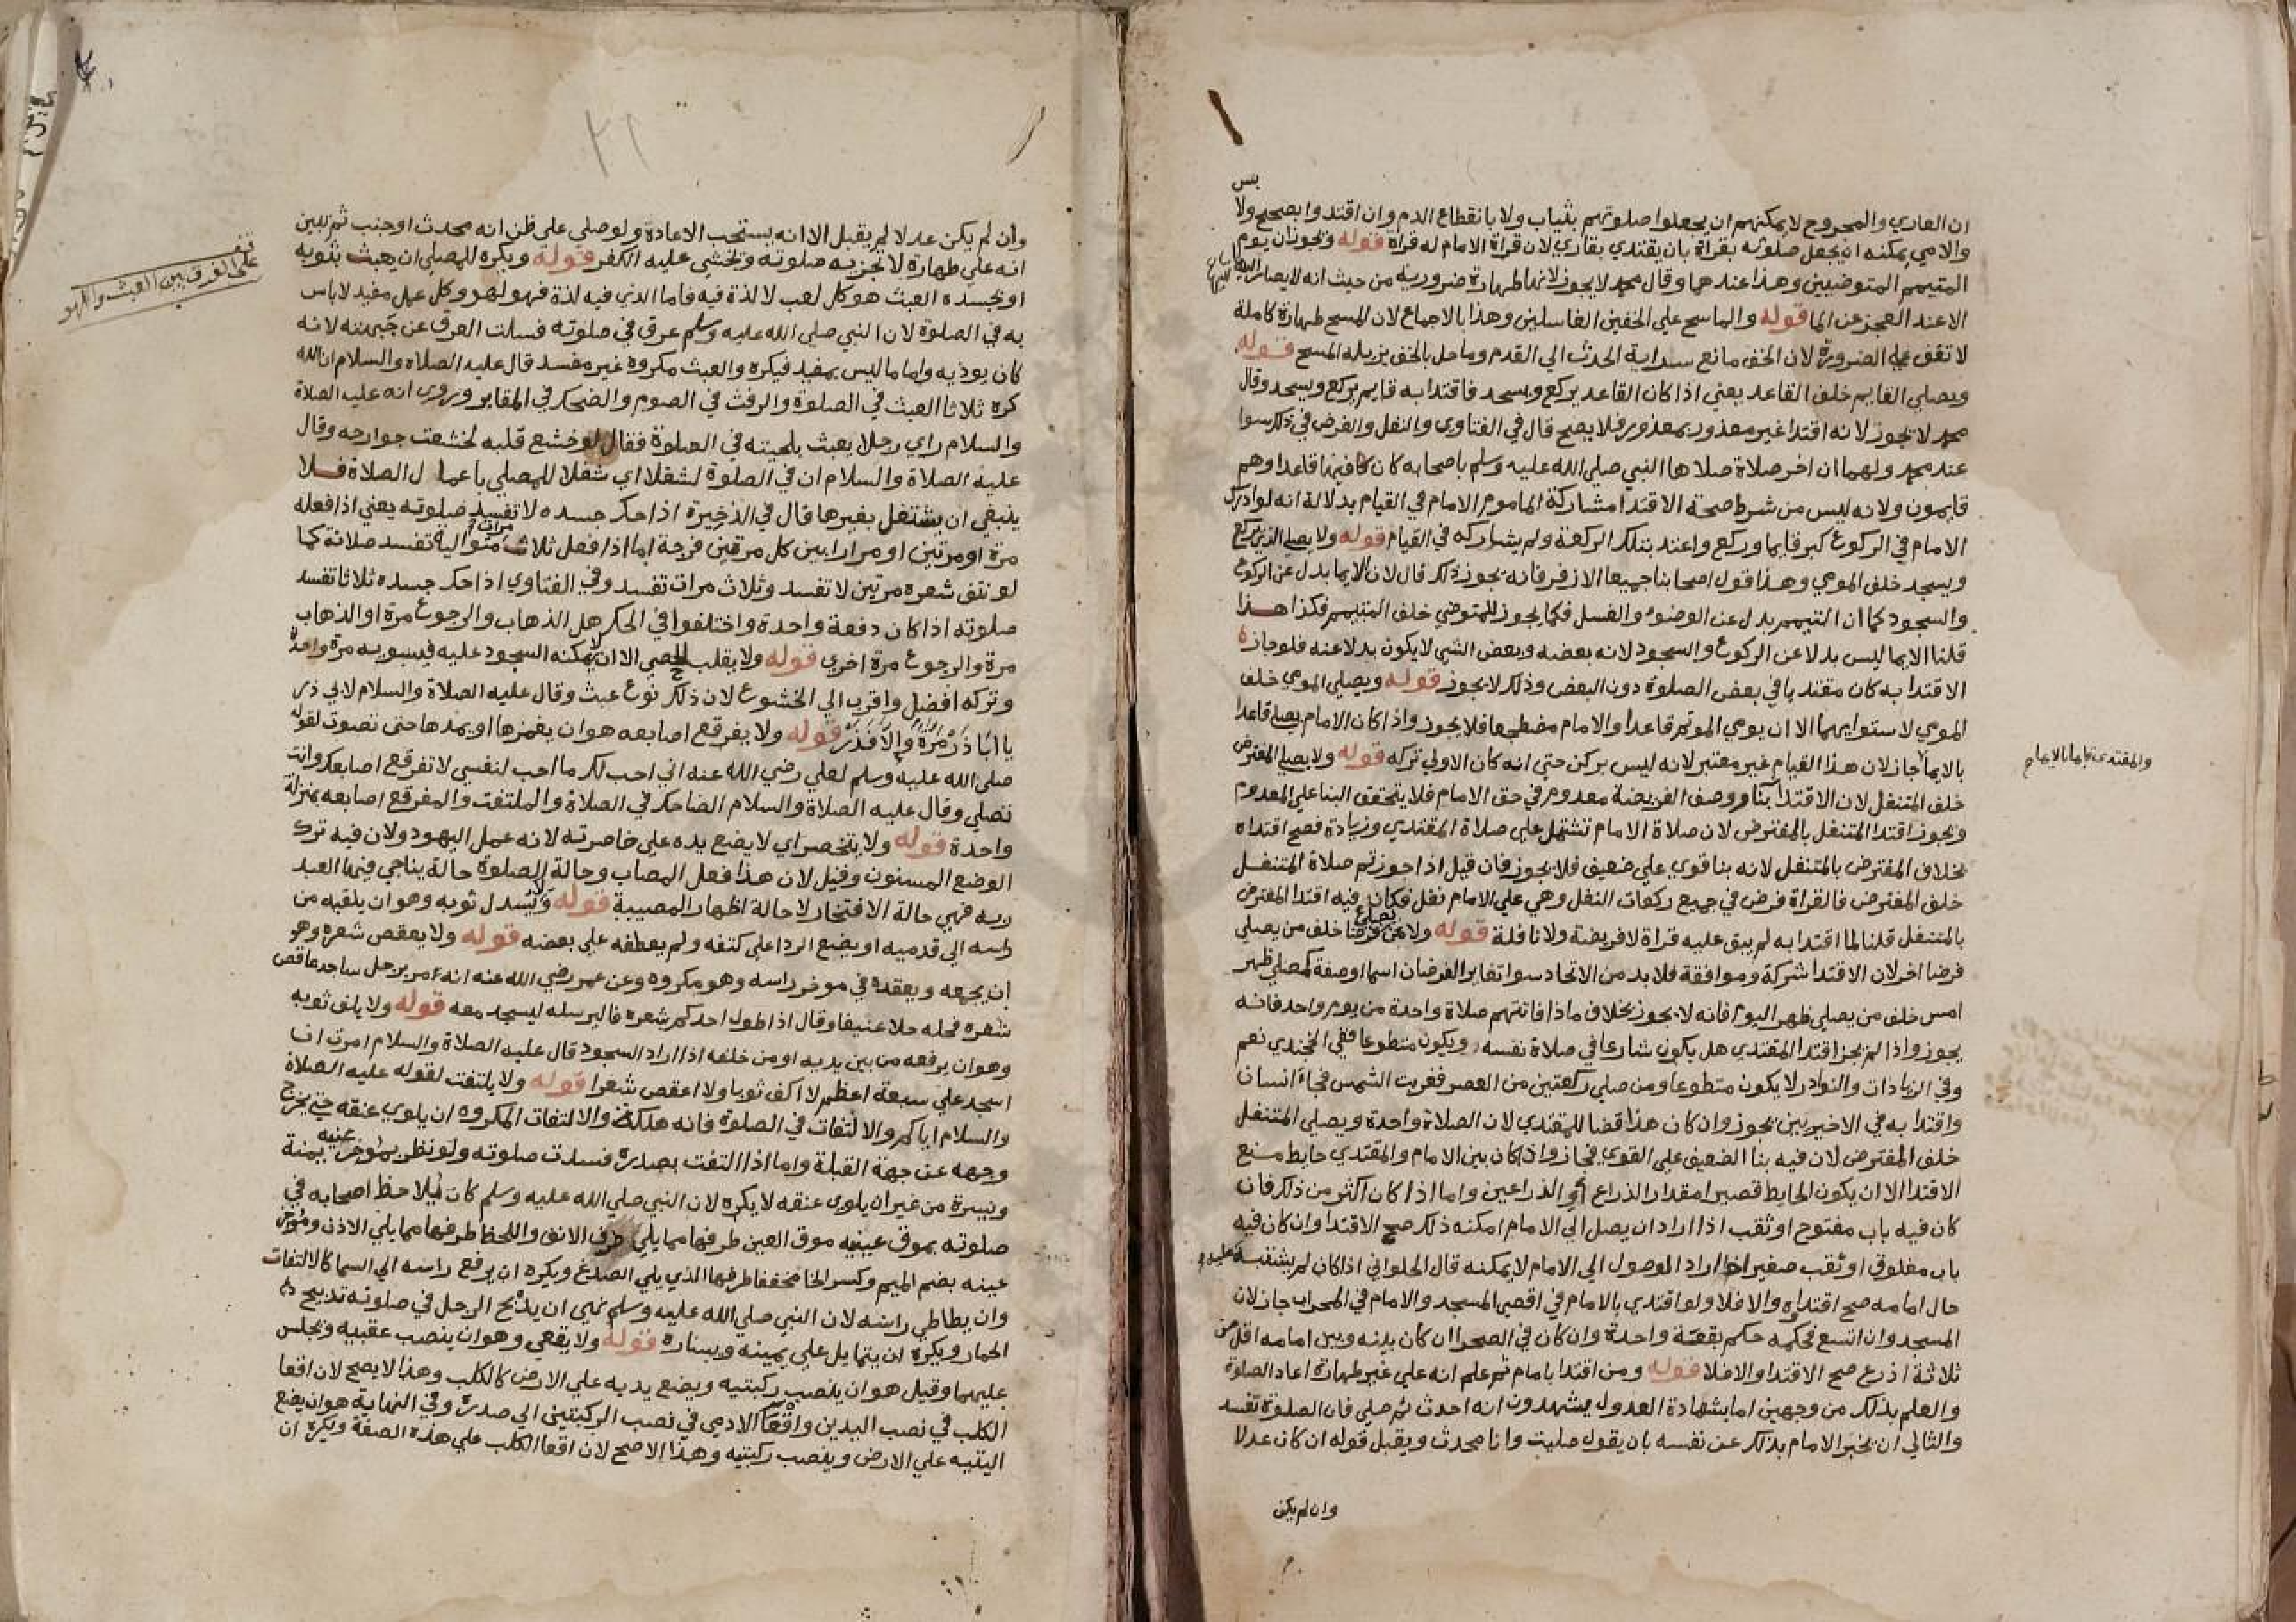 بس
ان العاري والمجروح لا يمكنهم ان يجعلوا صلوتهم بثياب ولا بانقطاع الدم وان اقتدوا بصحيح ولا
والامي يمكنه ان يجعل صلوته بقراة بان يقتدي بقاري لان قراة الامام له قراة قوله ويجوز ان يوم
المتيمم المتوضيين وهذا عندهما وقال محمد لا يجوز لانها طهارة ضرورية من حيث انه لا يصار اليها
الا عند العجز عن الما قوله والماسح علي الخفين الغاسلين وهذا بالاجماع لان المسح طهارة كاملة
لا تقف علي الضرورة لان الخف مانع سراية الحدث الي القدم وما حل بالخف يزيله المسح قوله
ويصلي القايم خلف القاعد يعني اذا كان القاعد يركع ويسجد فاقتدا به قايم يركع ويسجد وقال
محمد لا يجوز لانه اقتدا غير معذور بمعذور فلا يصح قال في الفتاوي والنفل والفرض في ذلك سوا
عند محمد ولهما ان اخر صلاة صلاها النبي صلي الله عليه وسلم باصحابه كان فيها قاعدا وهم
قايمون ولانه ليس من شرط صحة الاقتدا مشاركة الماموم الامام في القيام بدلالة انه لو ادرك
الامام في الركوع كبر قايما وركع واعتد بتلك الركعة ولم يشاركه في القيام قوله ولا يصلي الذي يركع
ويسجد خلف المومي وهذا قول اصحابنا جميعا الا زفر فانه يجوز ذلك قال لان الايما بدل عن الركوع
والسجود كما ان التيمم بدل عن الوضوء والغسل فكما يجوز للمتوضي خلف المتيمم فكذا هذا
قلنا الايما ليس بدلا عن الركوع والسجود لانه بعضه وبعض الشي لا يكون بدلا عنه فلو جاز
الاقتدا به كان مقتديا في بعض الصلوة دون البعض وذلك لا يجوز قوله ويصلي المومي خلف
المومي لاستوايهما الا ان يومي الموتم قاعدا والامام مضطجعا فلا يجوز واذا كان الامام يصلي قاعدا
والمقتدي قايما بالايما
بالايما جاز لان هذا القيام غير معتبر لانه ليس بركن حتي انه كان الاولي تركه قوله ولا يصلي المفترض
خلف المتنفل لان الاقتدا بنا ووصف الفريضة معدوم في حق الامام فلا يتحقق البنا علي المعدوم
ويجوز اقتدا المتنفل بالمفترض لان صلاة الامام تشتمل علي صلاة المقتدي وزيادة فصح اقتداه
بخلاف المفترض بالمتنفل لانه بنا قوي علي ضعيف فلا يجوز فان قيل اذا جوزتم صلاة المتنفل
خلف المفترض فالقراة فرض في جميع ركعات النفل وهي علي الامام نفل فكان فيه اقتدا المفترض
بالمتنفل قلنا لما اقتدا به لم يبق عليه قراة لا فريضة ولا نافلة قوله ولا من يصلي فرضا خلف من يصلي
فرضا اخر لان الاقتدا شركة وموافقة فلا بد من الاتحاد سوا تغاير الفرضان اسما او صفة كمصلي ظهر
امس خلف من يصلي ظهر اليوم فانه لا يجوز بخلاف ما اذا فاتتهم صلاة واحدة من يوم واحد فانه
يجوز واذا لم يجز اقتدا المقتدي هل يكون شارعا في صلاة نفسه ويكون متطوعا ففي الخجندي نعم
وفي الزيادات والنوادر لا يكون متطوعا ومن صلي ركعتين من العصر فغربت الشمس فجاء انسان
واقتدا به في الاخيرتين يجوز وان كان هذا قضا للمقتدي لان الصلاة واحدة ويصلي المتنفل
خلف المفترض لان فيه بنا الضعيف علي القوي فجاز وان كان بين الامام والمقتدي حايط منع
الاقتدا الا ان يكون الحايط قصيرا مقدار الذراع او الذراعين واما اذا كان اكثر من ذلك فان
كان فيه باب مفتوح او ثقب اذا اراد ان يصل الي الامام امكنه ذلك صح الاقتدا وان كان فيه
باب مغلوق او ثقب صغير اذا اراد الوصول الي الامام لا يمكنه قال الحلواني اذا كان لم يشتبه عليه
حال امامه صح اقتداه والا فلا ولو اقتدي بالامام في اقصي المسجد والامام في المحراب جاز لان
المسجد وان اتسع فحكمه حكم بقعة واحدة وان كان في الصحرا ان كان بينه وبين امامه اقل من
ثلاثة اذرع صح الاقتدا والا فلا قوله ومن اقتدا بامام ثم علم انه علي غير طهارة اعاد الصلوة
والعلم بذلك من وجهين اما بشهادة العدول يشهدون انه احدث ثم صلي فان الصلوة تفسد
والثاني ان يخبر الامام بذلك عن نفسه بان يقول صليت وانا محدث ويقبل قوله ان كان عدلا
وان لم يكن
٢١
وان لم يكن عدلا لم يقبل الا انه يستحب الاعادة ولو صلي علي ظن انه محدث او جنب ثم تبين
انه علي طهارة لا تجزيه صلوته ويخشي عليه الكفر قوله ويكره للمصلي ان يعبث بثوبه
قف
علي الفرق بين العبث واللهو
او بجسده العبث هو كل لعب لا لذة فيه فاما الذي فيه لذة فهو لهو وكل عمل مفيد لا باس
به في الصلوة لان النبي صلي الله عليه وسلم عرق في صلوته فسلت العرق عن جبهته لانه
كان يوذيه واما ما ليس بمفيد فيكره والعبث مكروه غير مفسد قال عليه الصلاة والسلام ان الله
كره ثلاثا العبث في الصلوة والرفث في الصوم والضحك في المقابر وروي انه عليه الصلاة
والسلام راي رجلا يعبث بلحيته في الصلوة فقال لو خشع قلبه لخشعت جوارحه وقال
عليه الصلاة والسلام ان في الصلوة لشغلا اي شغلا للمصلي باعمال الصلاة فلا
ينبغي ان يشتغل بغيرها قال في الذخيرة اذا حك جسده لا تفسد صلوته يعني اذا فعله
مرة او مرتين او مرارا بين كل مرتين فرجة اما اذا فعل ثلاث مرات متوالية تفسد صلاته كما
لو نتف شعره مرتين لا تفسد وثلاث مرات تفسد وفي الفتاوي اذا حك جسده ثلاثا تفسد
صلوته اذا كان دفعة واحدة واختلفوا في الحك هل الذهاب والرجوع مرة او الذهاب
مرة والرجوع مرة اخري قوله ولا يقلب الحصي الا ان لا يمكنه السجود عليه فيسويه مرة واحدة
وتركه افضل واقرب الي الخشوع لان ذلك نوع عبث وقال عليه الصلاة والسلام لابي ذر
يا ابا ذر مرة والا فذر قوله ولا يفرقع اصابعه هو ان يغمزها او يمدها حتي تصوت لقوله
صلي الله عليه وسلم لعلي رضي الله عنه اني احب لك ما احب لنفسي لا تفرقع اصابعك وانت
تصلي وقال عليه الصلاة والسلام الضاحك في الصلاة والملتفت والمفرقع اصابعه بمنزلة
واحدة قوله ولا يتخصر اي لا يضع يده علي خاصرته لانه عمل اليهود ولان فيه ترك
الوضع المسنون وقيل لان هذا فعل المصاب وحالة الصلوة حالة يناجي فيها العبد
ربه فهي حالة الافتخار لا حالة اظهار المصيبة قوله ولا يسدل ثوبه وهو ان يلقيه من
راسه الي قدميه او يضع الردا علي كتفه ولم يعطفه علي بعضه قوله ولا يعقص شعره وهو
ان يجمعه ويعقده في موخر راسه وهو مكروه وعن عمر رضي الله عنه انه مر برجل ساجد عاقص
شعره فحله حلا عنيفا وقال اذا طول احدكم شعره فاليرسله ليسجد معه قوله ولا يلف ثوبه
وهو ان يرفعه من بين يديه او من خلفه اذا اراد السجود قال عليه الصلاة والسلام امرت ان
اسجد علي سبعة اعظم لا اكف ثوبا ولا اعقص شعرا قوله ولا يلتفت لقوله عليه الصلاة
والسلام اياكم والالتفات في الصلوة فانه هلكة والالتفات المكروه ان يلوي عنقه حتي يخرج
وجهه عن جهة القبلة واما اذا التفت بصدره فسدت صلوته ولو نظر بموخر عينيه يمنة
ويسرة من غير ان يلوي عنقه لا يكره لان النبي صلي الله عليه وسلم كان يلاحظ اصحابه في
صلوته بموق عينيه موق العين طرفها مما يلي الانف واللحظ طرفها مما يلي الاذن وموخر
عينه بضم الميم وكسر الخا مخففا طرفها الذي يلي الصدغ ويكره ان يرفع راسه الي السما كالالتفات
وان يطاطي راسه لان النبي صلي الله عليه وسلم نهي ان يذبح الرجل في صلوته تدبيح
الحمار ويكره ان يتمايل علي يمينه ويساره قوله ولا يقعي وهو ان ينصب عقبيه ويجلس
عليهما وقيل هو ان ينصب ركبتيه ويضع يديه علي الارض كالكلب وهذا لا يصح لان اقعا
الكلب في نصب اليدين واقعا الادمي في نصب الركبتين الي صدره وفي النهاية هو ان يضع
اليتيه علي الارض وينصب ركبتيه وهذا الاصح لان اقعا الكلب علي هذه الصفة ويكره ان